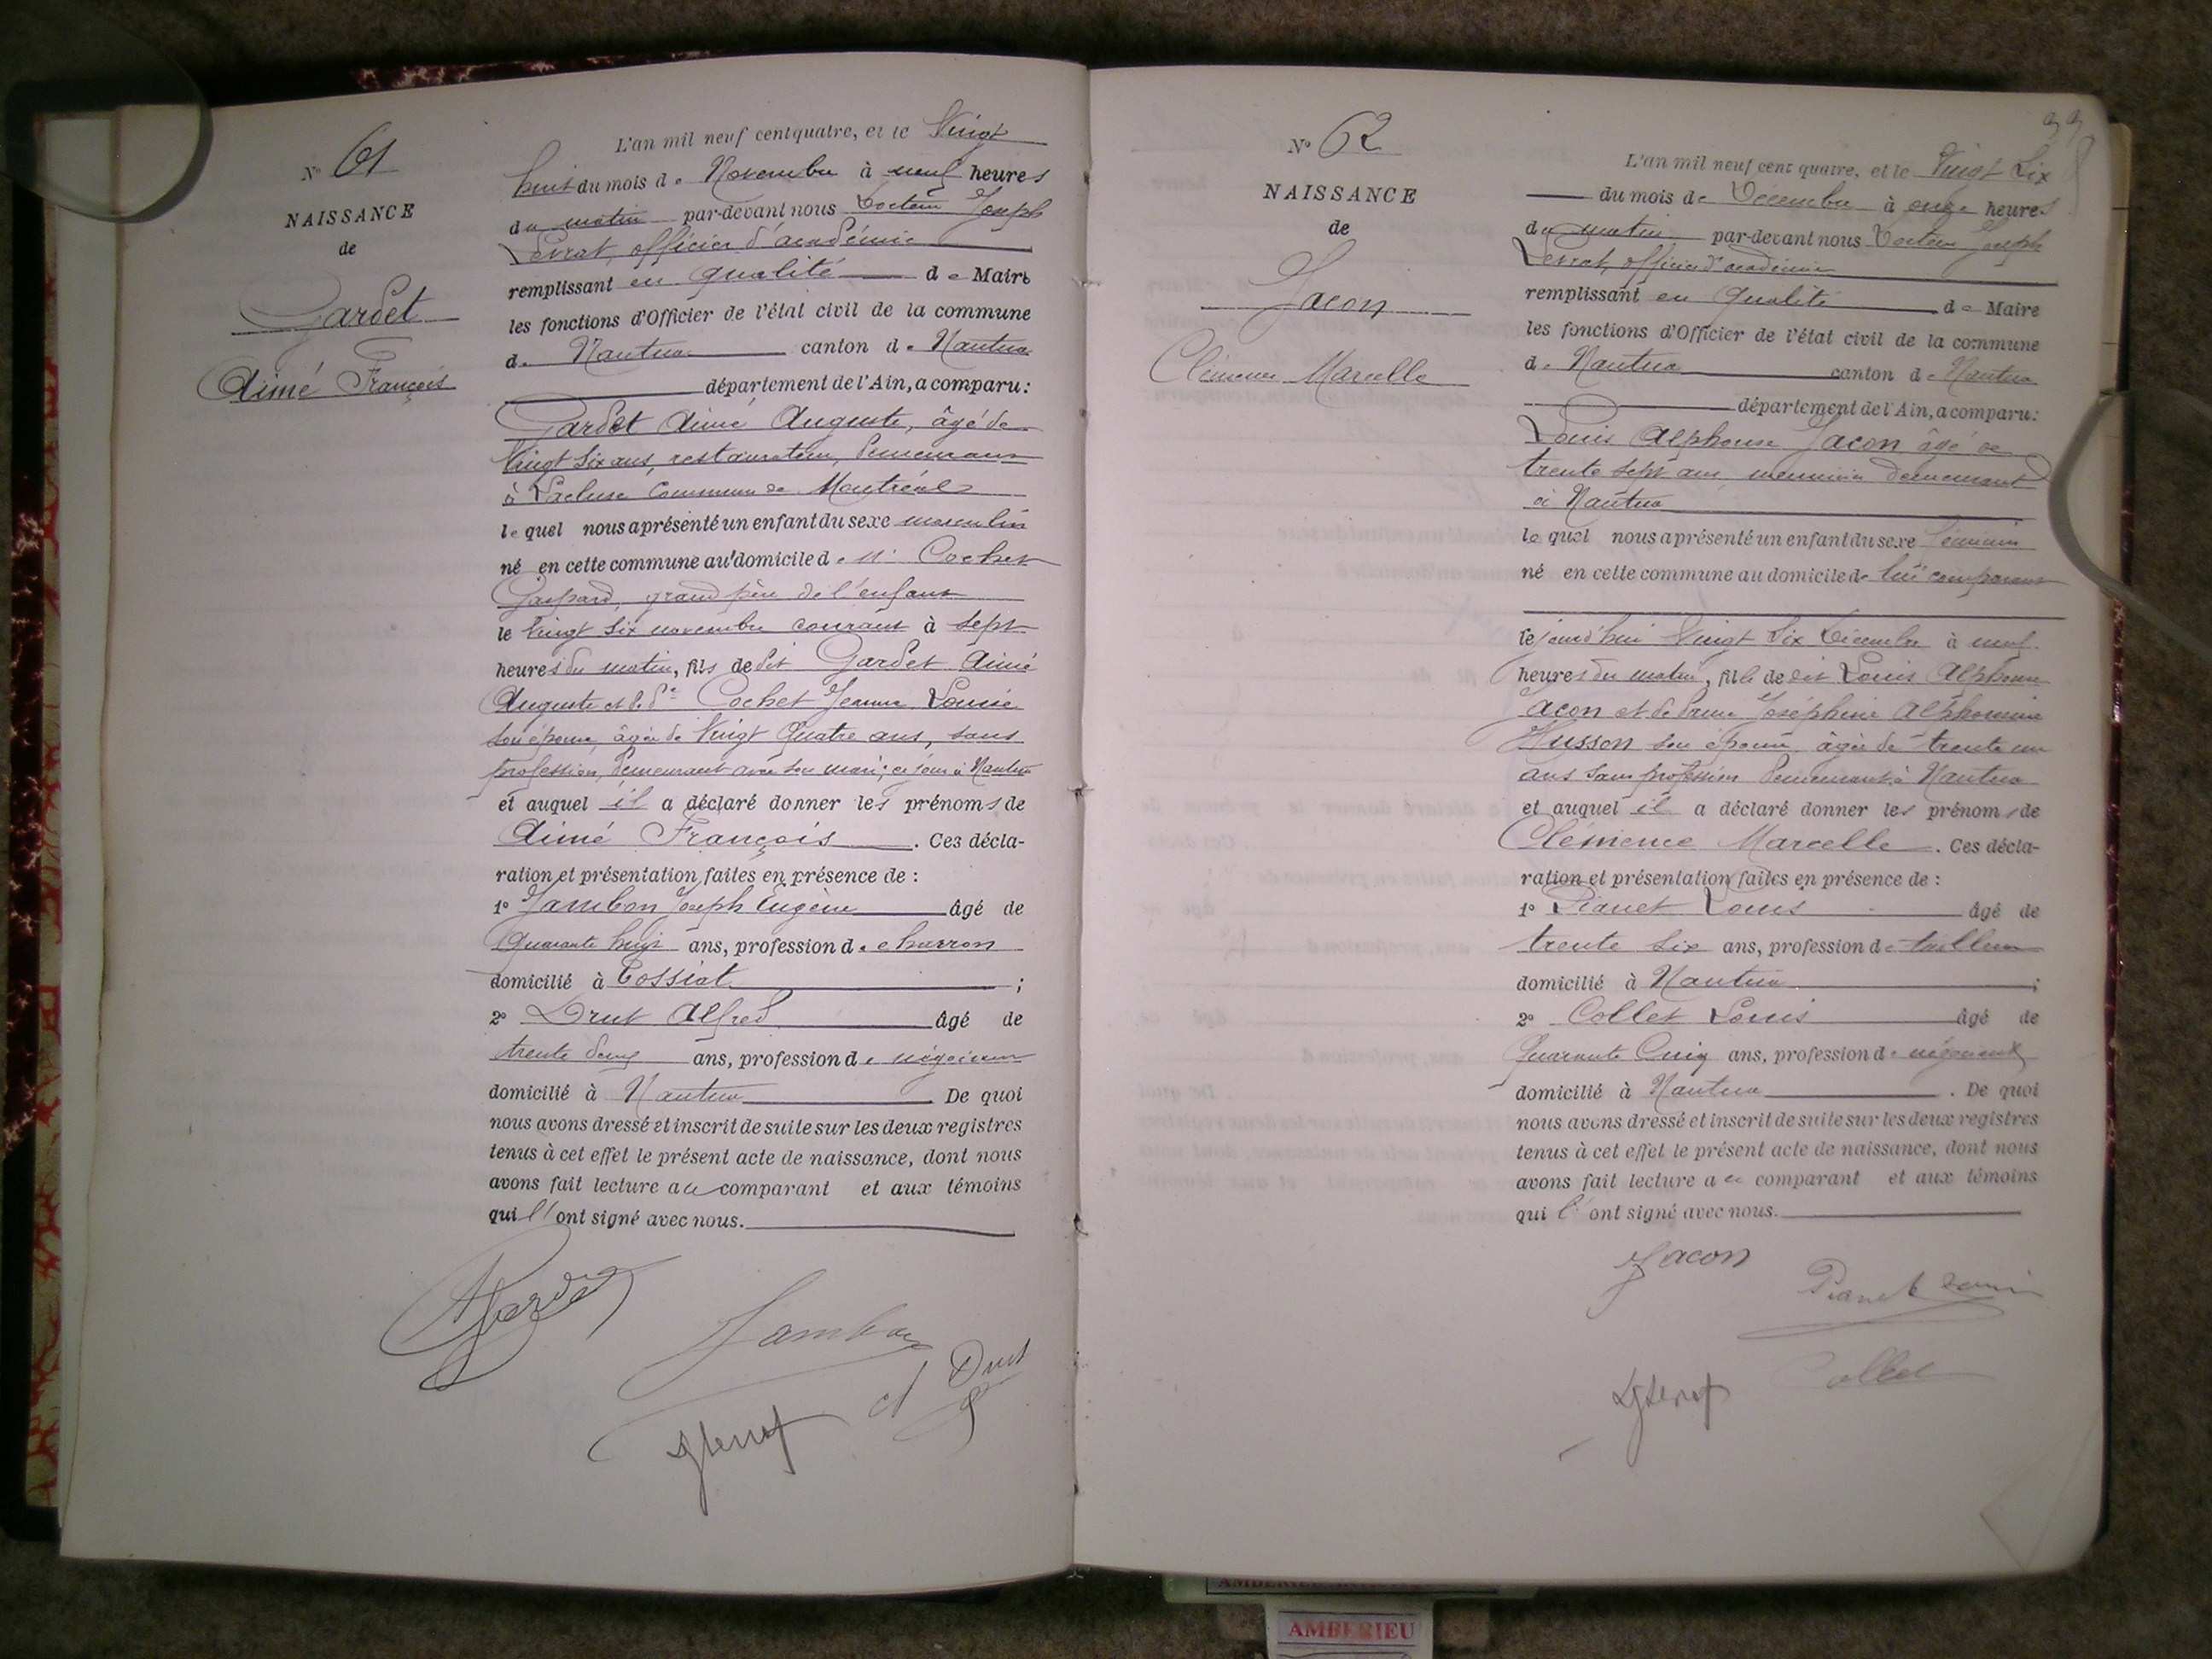 N° 61
NAISSANCE
de
Gardet
Aimé François
L'an mil neuf cent quatre, et le Vingt
huit du mois de Novembre à neuf heures
du matin par-devant nous Docteur Joseph
Levrat, officier d'académie
remplissant en qualité de Maire
les fonctions d'Officier de l'état civil de la commune
de Nantua canton de Nantua
département de l'Ain, a comparu:
Gardet Aimé Auguste, âgé de
Vingt Six ans, restaurateur, demeurant
à Lacluse Commune de Montréal
lequel nous a présenté un enfant du sexe masculin
né en cette commune au domicile de Mr Cochet
Gaspard, grand père de l'enfant
le Vingt Six novembre courant à Sept
heures du matin, fils de dit Gardet Aimé
Auguste et de De Cochet Jeanne Louise
son épouse, âgée de Vingt Quatre ans, sans
profession, demeurant avec son mari; ce jour à Nantua
et auquel il a déclaré donner les prénoms de
Aimé François. Ces décla-
ration et présentation faites en présence de :
1° Jambon Joseph Eugène âgé de
Quarante huit ans, profession de charron
domicilié à Tossiat ;
2° Drut Alfred âgé de
trente deux ans, profession de négociant
domicilié à Nantua De quoi
nous avons dressé et inscrit de suite sur les deux registres
tenus à cet effet le présent acte de naissance, dont nous
avons fait lecture au comparant et aux témoins
qui l' ont signé avec nous.
Gardet
Jambon
A Drut
N° 62
NAISSANCE
de
Jacon
Clémence Marcelle
L'an mil neuf cent quatre, et le Vingt Six
du mois de Décembre à onze heures
du matin par-devant nous Docteur Joseph
Levrat, officier d'académie
remplissant en qualité de Maire
les fonctions d'Officier de l'état civil de la commune
de Nantua canton de Nantua
département de l'Ain, a comparu:
Louis Alphonse Jacon âgé de
trente Sept ans, menuisier demeurant
à Nantua
lequel nous a présenté un enfant du sexe féminin
né en cette commune au domicile de lui comparant
le jourd'hui Vingt Six Décembre à neuf
heures du matin, fille de dit Louis Alphonse
Jacon et de Joséphine Alphonsine
Husson son épouse âgée de trente un
ans sans profession demeurant à Nantua
et auquel il a déclaré donner les prénoms de
Clémence Marcelle. Ces décla-
ration et présentation faites en présence de :
1° Pianet Louis âgé de
trente Six ans, profession de tailleur
domicilié à Nantua ;
2° Collet Louis âgé de
Quarante Cinq ans, profession de négociant
domicilié à Nantua. De quoi
nous avons dressé et inscrit de suite sur les deux registres
tenus à cet effet le présent acte de naissance, dont nous
avons fait lecture au comparant et aux témoins
qui l' ont signé avec nous.
Jacon
Pianet Louis
Collet
AMBERIEU